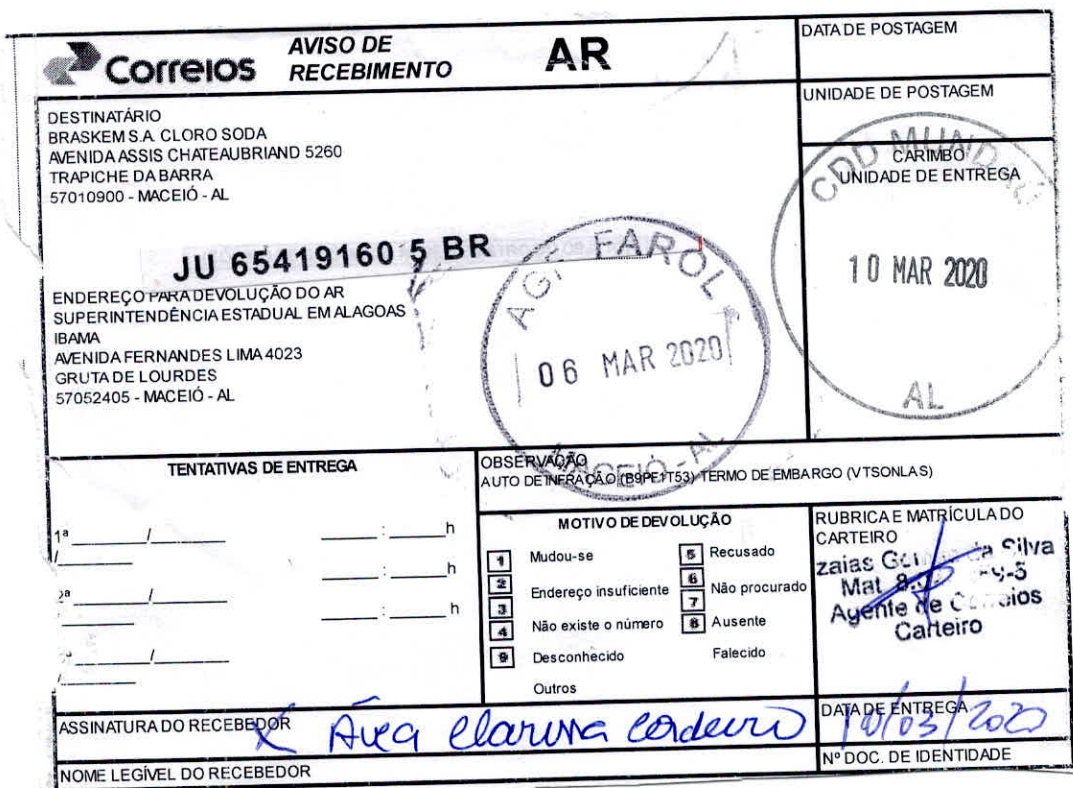 Correios
AVISO DE
RECEBIMENTO
AR
DATA DE POSTAGEM
UNIDADE DE POSTAGEM
DESTINATÁRIO
BRASKEM S.A. CLORO SODA
AVENIDA ASSIS CHATEAUBRIAND 5260
TRAPICHE DA BARRA
57010900 - MACEIÓ - AL
CARIMBO
UNIDADE DE ENTREGA
CDD MUNDAÚ
10 MAR 2020
AL
JU 65419160 5 BR
ENDEREÇO PARA DEVOLUÇÃO DO AR
SUPERINTENDÊNCIA ESTADUAL EM ALAGOAS
IBAMA
AVENIDA FERNANDES LIMA 4023
GRUTA DE LOURDES
57052405 - MACEIÓ - AL
AGF FAROL
06 MAR 2020
MACEIÓ - AL
TENTATIVAS DE ENTREGA
1ª ______/______ ____:____h
/______
2ª ______/______ ____:____h
/______
3ª ______/______ ____:____h
/______
OBSERVAÇÃO
AUTO DE INFRAÇÃO (B9PE1T53) TERMO DE EMBARGO (VTSONLAS)
MOTIVO DE DEVOLUÇÃO
1 Mudou-se
2 Endereço insuficiente
3
4 Não existe o número
9 Desconhecido
Outros
5 Recusado
6 Não procurado
7
8 Ausente
Falecido
RUBRICA E MATRÍCULA DO
CARTEIRO
zaias da Silva
Mat
Agente de Correios
Carteiro
ASSINATURA DO RECEBEDOR
X Clarissa Cordeiro
DATA DE ENTREGA
10/03/2020
NOME LEGÍVEL DO RECEBEDOR
Nº DOC. DE IDENTIDADE